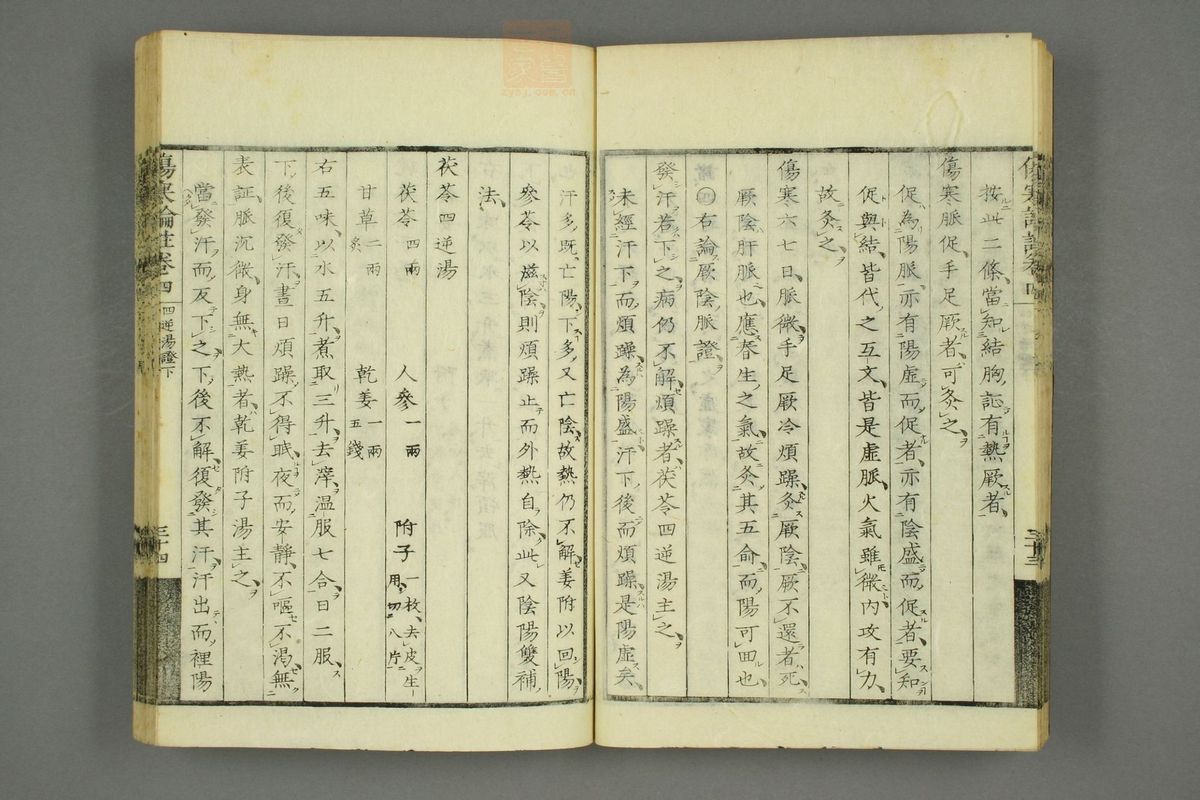 傷寒論註卷四
按此二條當知結胸証有熱厥者
傷寒脈促手足厥者可灸之
促為陽脈亦有陽虛而促者亦有陰盛而促者要知
促與結皆代之互文皆是虛脈火氣雖微內攻有力
故灸之
傷寒六七日脈微手足厥冷煩躁灸厥陰厥不還者死
厥陰肝脈也應春生之氣故灸其五俞而陽可回也
右論厥陰脈證
發汗若下之病仍不解煩躁者茯苓四逆湯主之
未經汗下而煩躁為陽盛汗下後而煩躁是陽虛矣
汗多既亡陽下多又亡陰故熱仍不解姜附以回陽
參苓以滋陰則煩躁止而外熱自除此又陰陽雙補
法
茯苓四逆湯
茯苓四兩 人參一兩 附子一枚去皮生用切八片
甘草二兩炙 乾姜一兩五錢
右五味以水五升煮取三升去滓温服七合日二服
下後復發汗晝日煩躁不得眠夜而安靜不嘔不渴無
表証脈沉微身無大熱者乾姜附子湯主之
當發汗而反下之下後不解復發其汗汗出而裡陽
傷寒論註卷四 四逆湯證下 三十四
zysj.com.cn